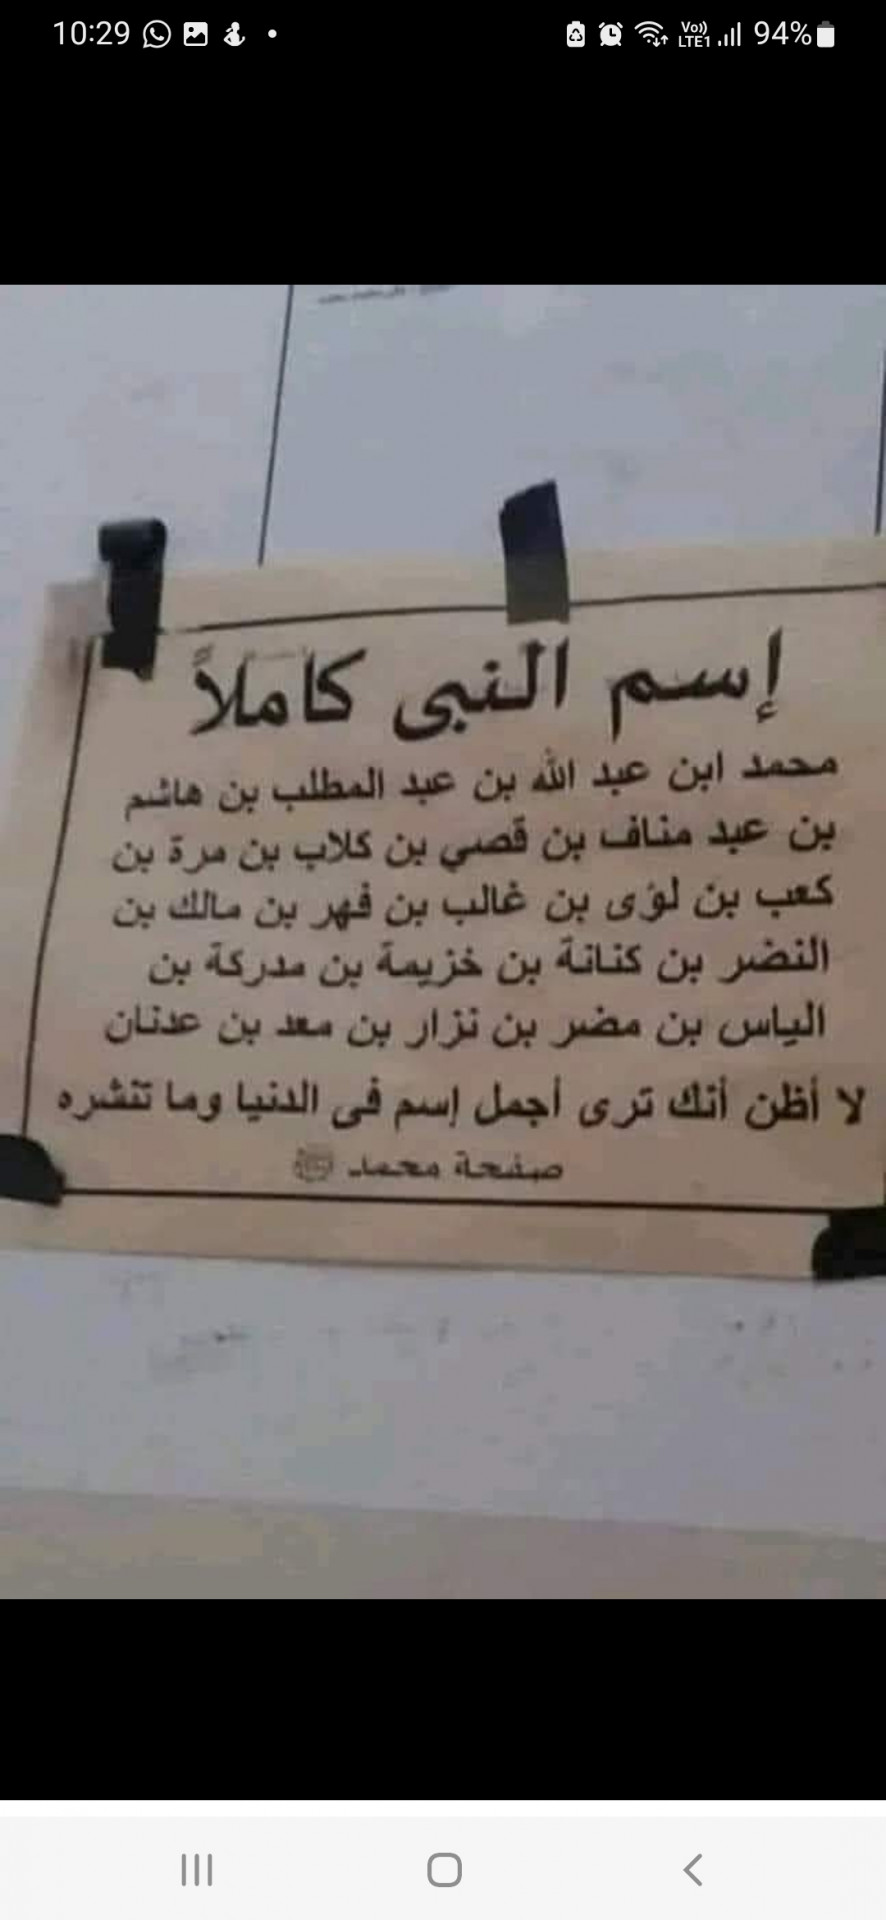 10:29
Vo)) LTE1 94%
إسم النبى كاملاً
محمد ابن عبد الله بن عبد المطلب بن هاشم
بن عبد مناف بن قصي بن كلاب بن مرة بن
كعب بن لؤى بن غالب بن فهر بن مالك بن
النضر بن كنانة بن خزيمة بن مدركة بن
الياس بن مضر بن نزار بن معد بن عدنان
لا أظن أنك ترى أجمل إسم فى الدنيا وما تنشره
صفحة محمد ﷺ